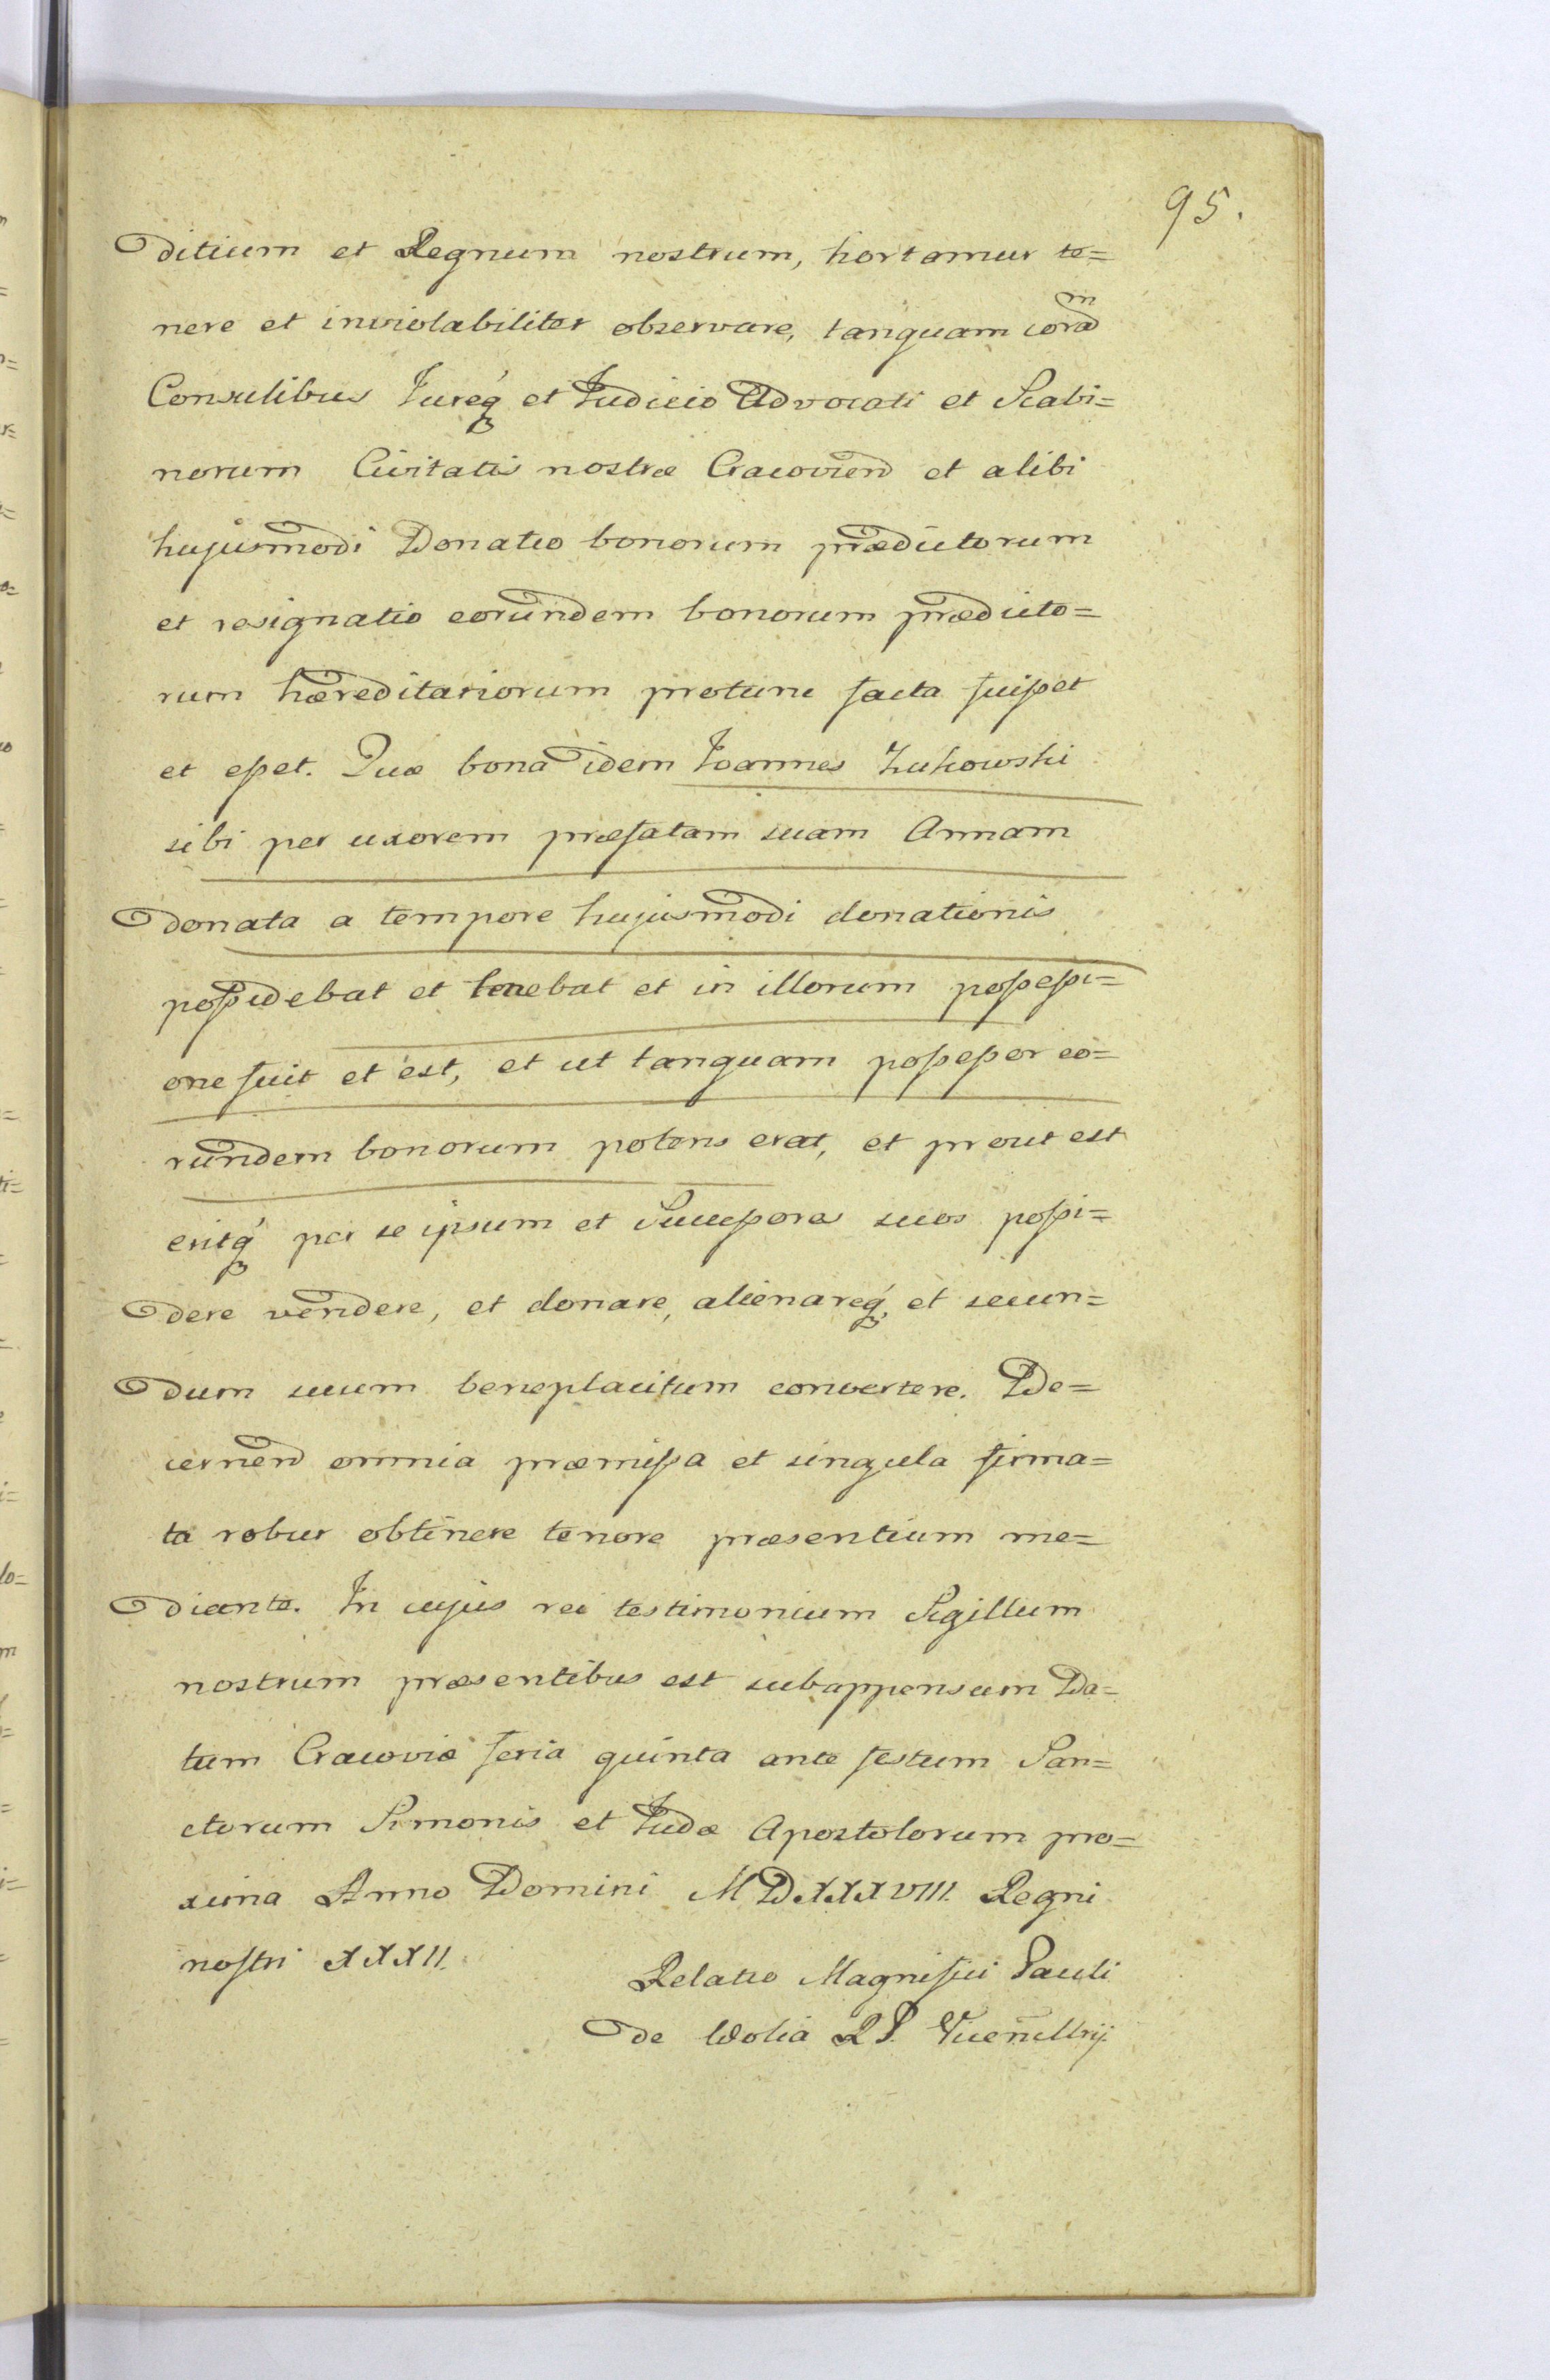 95.
ditium et Regnum nostrum, hortamur te=
nere et inviolabiliter observare, tanquam coram
Consulibus Jureq́ et Judicio Advocati et Scabi=
norum Civitatis nostræ Cracovień et alibi
hujusmodi Donatio bonorum prædictorum
et resignatio eorundem bonorum prædicto=
rum hæreditariorum protunc facta fuisset
et esset. Quæ bona idem Joannes Zukowski
sibi per uxorem præfatam suam Annam
donata a tempore hujusmodi donationis
possidebat et tenebat et in illorum possessi=
one fuit et est, et ut tanquam possessor eo=
rundem bonorum potens erat, et prout est
eritq́ per se ipsum et Successores suos possi=
dere vendere, et donare, alienareq́, et secun=
dum suum beneplacitum convertere. De=
cerneń omnia præmissa et singula firma=
ta robur obtinere tenore præsentium me=
diante. In cujus rei testimonium Sigillum
nostrum præsentibus est subappensum Da=
tum Cracoviæ feria quinta ante festum San=
ctorum Simonis et Judæ Apostolorum pro=
xima Anno Domini MDXXXVIII. Regni
nostri XXXII.
Relatio Magnifici Pauli
de Wolia R P.